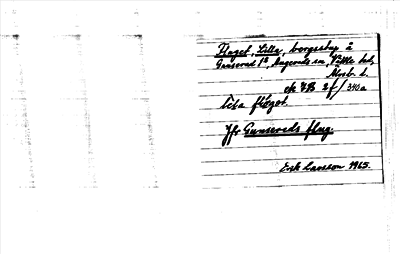 Fluget, Lilla, bergsstup å
Gunnered 1⁸, Angereds sn, Vättle hd,
Älvsb. l.
ek 7B 2f/390a
lisa flöget.
Jfr Gunnereds flug.
Erik Larsson 1965.